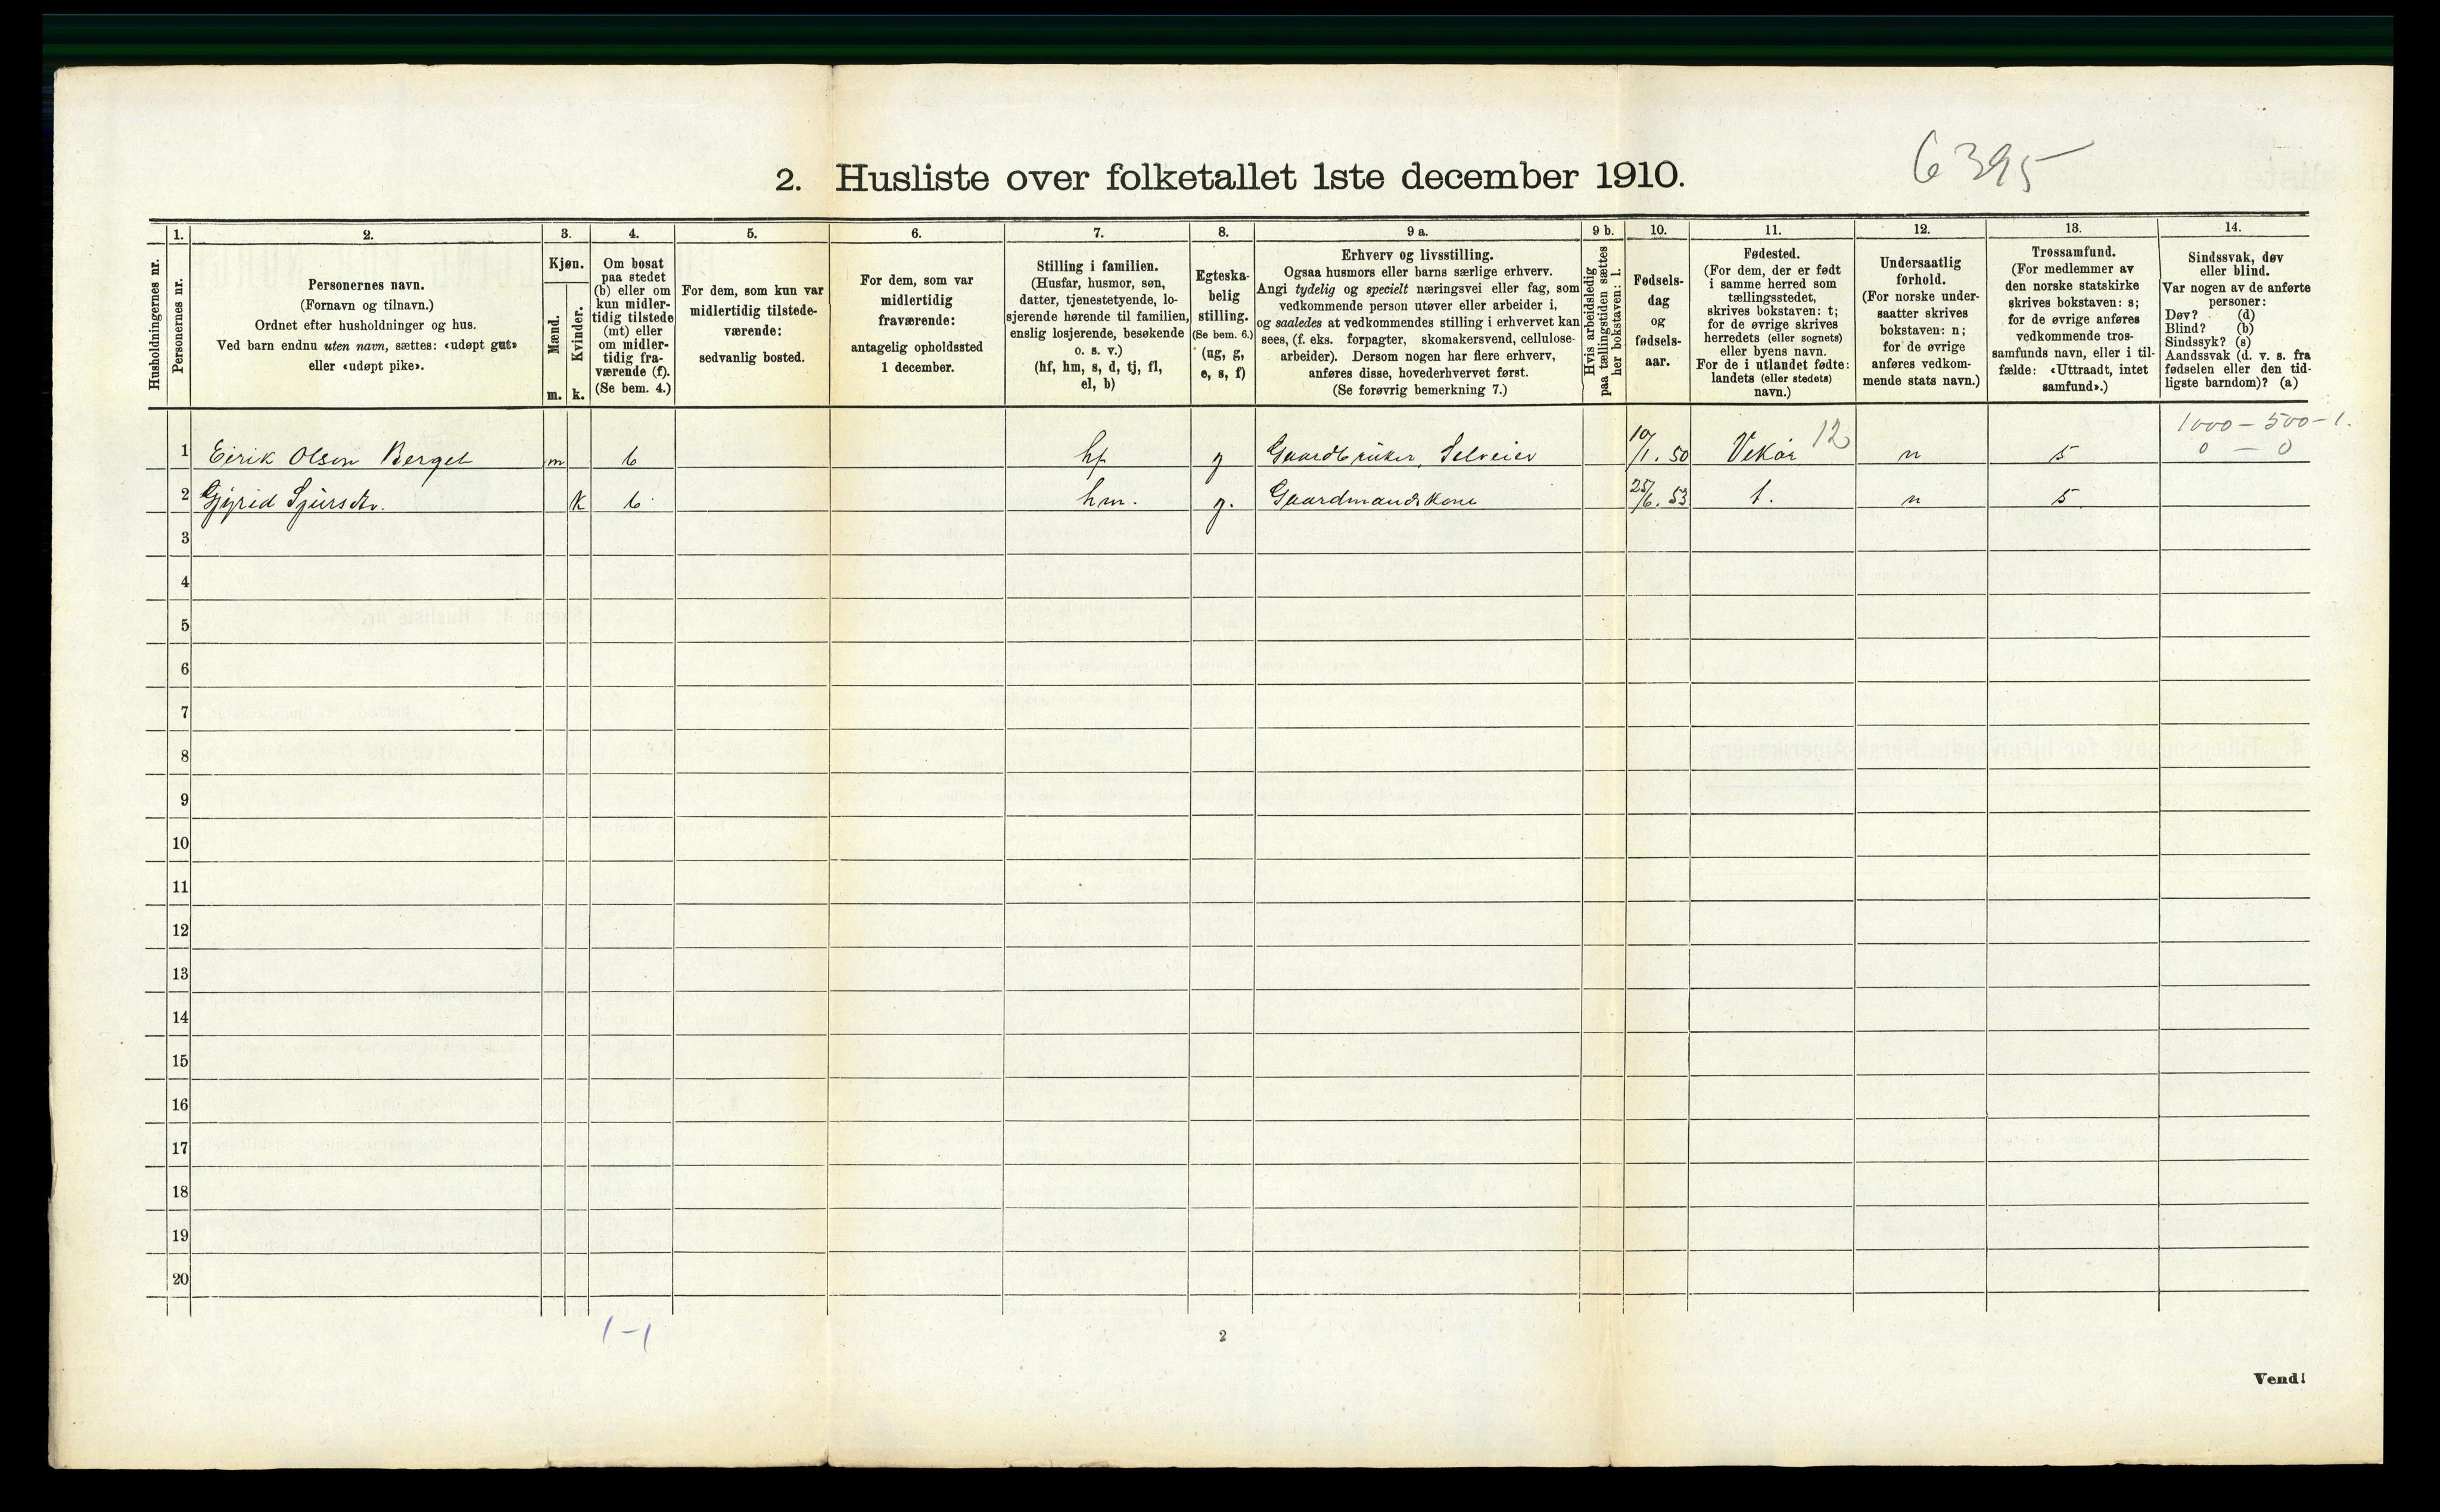 6395
2. Husliste over folketallet 1ste december 1910.
Husholdningernes nr.
1.
Personernes nr.
2.
Personernes navn.
(Fornavn og tilnavn.)
Ordnet efter husholdninger og hus.
Ved barn endnu uten navn, sættes: «udøpt gut»
eller «udøpt pike».
3.
Kjøn.
Mænd.
m.
Kvinder.
k.
4.
Om bosat
paa stedet
(b) eller om
kun midler-
tidig tilstede
(mt) eller
om midler-
tidig fra-
værende (f).
(Se bem. 4.)
5.
For dem, som kun var
midlertidig tilstede-
værende:
sedvanlig bosted.
6.
For dem, som var
midlertidig
fraværende:
antagelig opholdssted
1 december.
7.
Stilling i familien.
(Husfar, husmor, søn,
datter, tjenestetyende, lo-
sjerende hørende til familien,
enslig losjerende, besøkende
o. s. v.)
(hf, hm, s, d, tj, fl,
el, b)
8.
Egteska-
belig
stilling.
(Se bem. 6.)
(ug, g,
e, s, f)
9 a.
Erhverv og livsstilling.
Ogsaa husmors eller barns særlige erhverv.
Angi tydelig og specielt næringsvei eller fag, som
vedkommende person utøver eller arbeider i,
og saaledes at vedkommendes stilling i erhvervet kan
sees, (f. eks. forpagter, skomakersvend, cellulose-
arbeider). Dersom nogen har flere erhverv,
anføres disse, hovederhvervet først.
(Se forøvrig bemerkning 7.)
9 b.
Hvis arbeidsledig
paa tællingstiden sættes
her bokstaven: l.
10.
Fødsels-
dag
og
fødsels-
aar.
11.
Fødested.
(For dem, der er født
i samme herred som
tællingsstedet,
skrives bokstaven: t;
for de øvrige skrives
herredets (eller sognets)
eller byens navn.
For de i utlandet fødte:
landets (eller stedets)
navn.)
12.
Undersaatlig
forhold.
(For norske under-
saatter skrives
bokstaven: n;
for de øvrige
anføres vedkom-
mende stats navn.)
13.
Trossamfund.
(For medlemmer av
den norske statskirke
skrives bokstaven: s;
for de øvrige anføres
vedkommende tros-
samfunds navn, eller i til-
fælde: «Uttraadt, intet
samfund».)
14.
Sindssvak, døv
eller blind.
Var nogen av de anførte
personer:
Døv? (d)
Blind? (b)
Sindssyk? (s)
Aandssvak (d. v. s. fra
fødselen eller den tid-
ligste barndom)? (a)
1000 - 500 - 1.
1 Eirik Olson Berget m b hf g Gaardbruker, Selveier 10/1. 50 Vikør 12 n s 0 - 0
2 Gjyrid Sjursdtr. k b hm. g. Gaardmandskone 25/6. 53 t. n s
3
4
5
6
7
8
9
10
11
12
13
14
15
16
17
18
19
20
1-1
2
Vend!